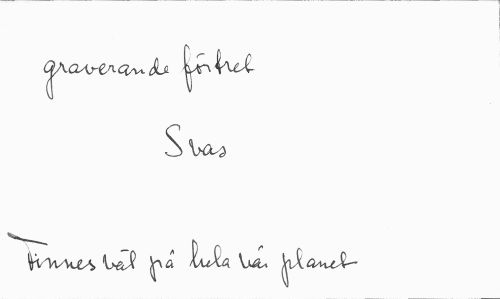 graverande förtret
Svas
Finnes väl på hela vår planet